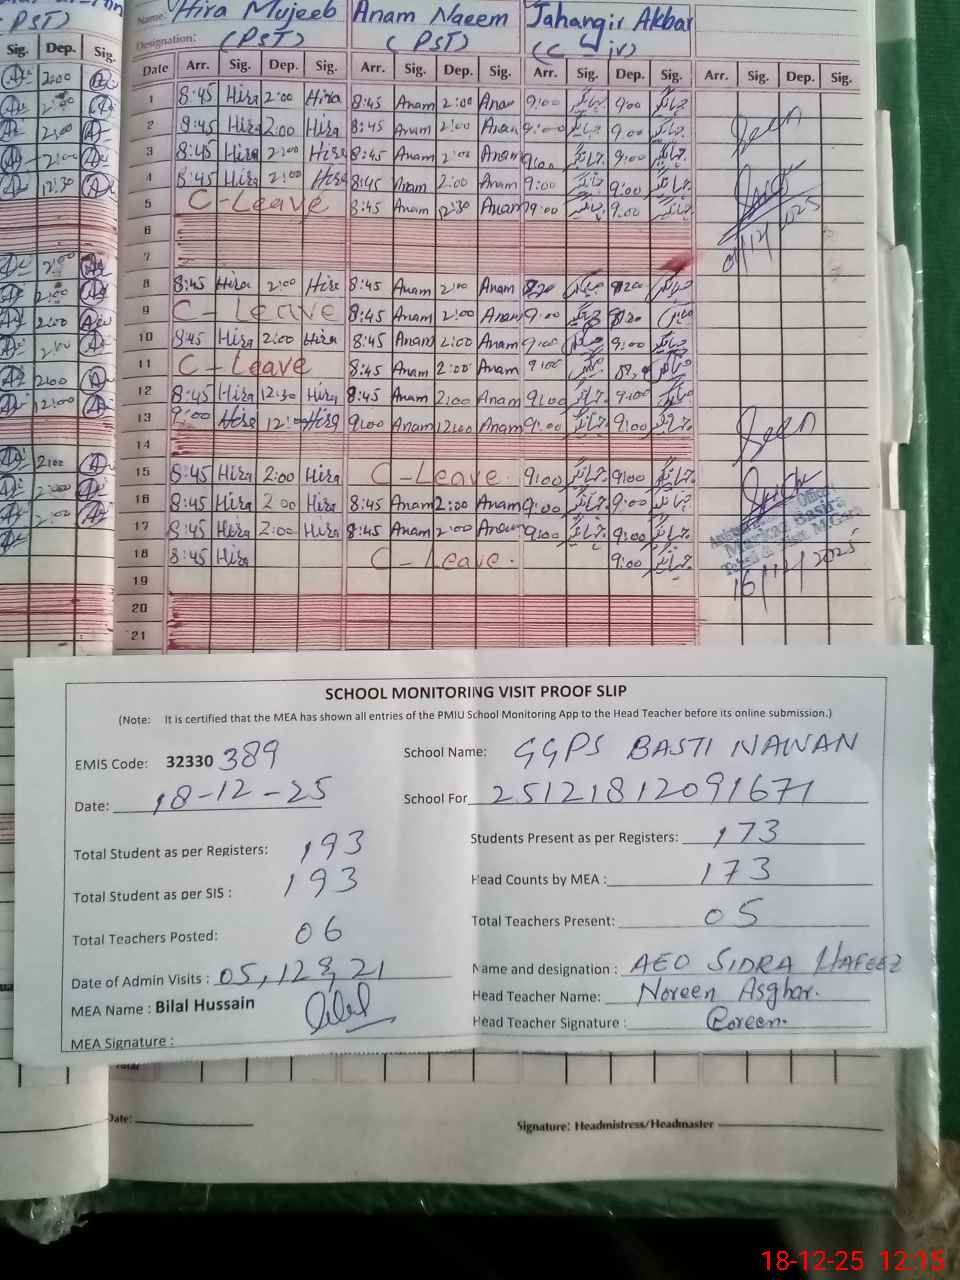 PST)
Sig. Dep. Sig.
Name: Hira Mujeeb Anam Naeem Jahangir Akbar
Designation: (PST) (PST)
Date Arr. Sig. Dep. Sig. Arr. Sig. Dep. Sig. Arr. Sig. Dep. Sig. Arr. Sig. Dep. Sig.
1 8:45 Hira 2:00 Hira 8:45 Anam 2:00 Anam 9:00 جہانگیر 9:00 جہانگیر
2 8:45 Hira 2:00 Hira 8:45 Anam 2:00 Anam 9:00 جہانگیر 9:00 جہانگیر Seen
3 8:45 Hira 2:00 Hira 8:45 Anam 2:00 Anam 9:00 جہانگیر 9:00 جہانگیر
4 8:45 Hira 2:00 Hira 8:45 Anam 2:00 Anam 9:00 جہانگیر 9:00 جہانگیر
5 C-Leave 8:45 Anam 12:30 Anam 9:00 جہانگیر 9:00 جہانگیر
6
7
8 8:45 Hira 2:00 Hira 8:45 Anam 2:00 Anam
9 C-Leave 8:45 Anam 2:00 Anam 9:00 جہانگیر
10 8:45 Hira 2:00 Hira 8:45 Anam 2:00 Anam 9:00 جہانگیر 9:00 جہانگیر
11 C-Leave 8:45 Anam 2:00 Anam 9:00 جہانگیر
12 8:45 Hira 12:30 Hira 8:45 Anam 2:00 Anam 9:00 جہانگیر 9:00 جہانگیر
13 9:00 Hira 12:00 Hira 9:00 Anam 12:00 Anam 9:00 جہانگیر 9:00 جہانگیر Seen
14
15 8:45 Hira 2:00 Hira C-Leave. 9:00 جہانگیر 9:00 جہانگیر
16 8:45 Hira 2:00 Hira 8:45 Anam 2:00 Anam 9:00 جہانگیر 9:00 جہانگیر
17 8:45 Hira 2:00 Hira 8:45 Anam 2:00 Anam 9:00 جہانگیر 9:00 جہانگیر
18 8:45 Hira C-Leave. 9:00 جہانگیر
16/12/2025
19
20
21
SCHOOL MONITORING VISIT PROOF SLIP
(Note: It is certified that the MEA has shown all entries of the PMIU School Monitoring App to the Head Teacher before its online submission.)
EMIS Code: 32330 389 School Name: GGPS BASTI NAWAN
Date: 18-12-25 School For 25121812091671
Total Student as per Registers: 193 Students Present as per Registers: 173
Total Student as per SIS : 193 Head Counts by MEA : 173
Total Teachers Posted: 06 Total Teachers Present: 05
Date of Admin Visits : 05,128,21 Name and designation : AEO SIDRA HAFEEZ
MEA Name : Bilal Hussain Head Teacher Name: Noreen Asghar.
MEA Signature : Head Teacher Signature : Noreen.
Total
Date: Signature: Headmistress/Headmaster
18-12-25 12:15